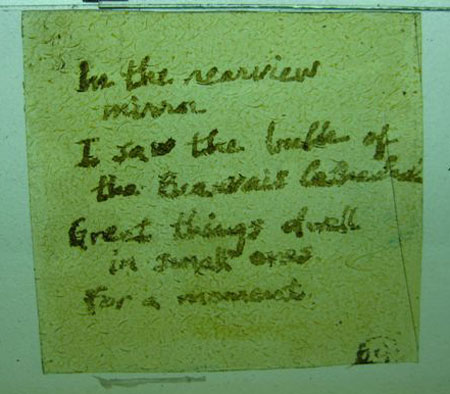 In the rearview
mirror
I saw the bulk of
the Beauvais Cathedral
Great things dwell
in small ones
for a moment.